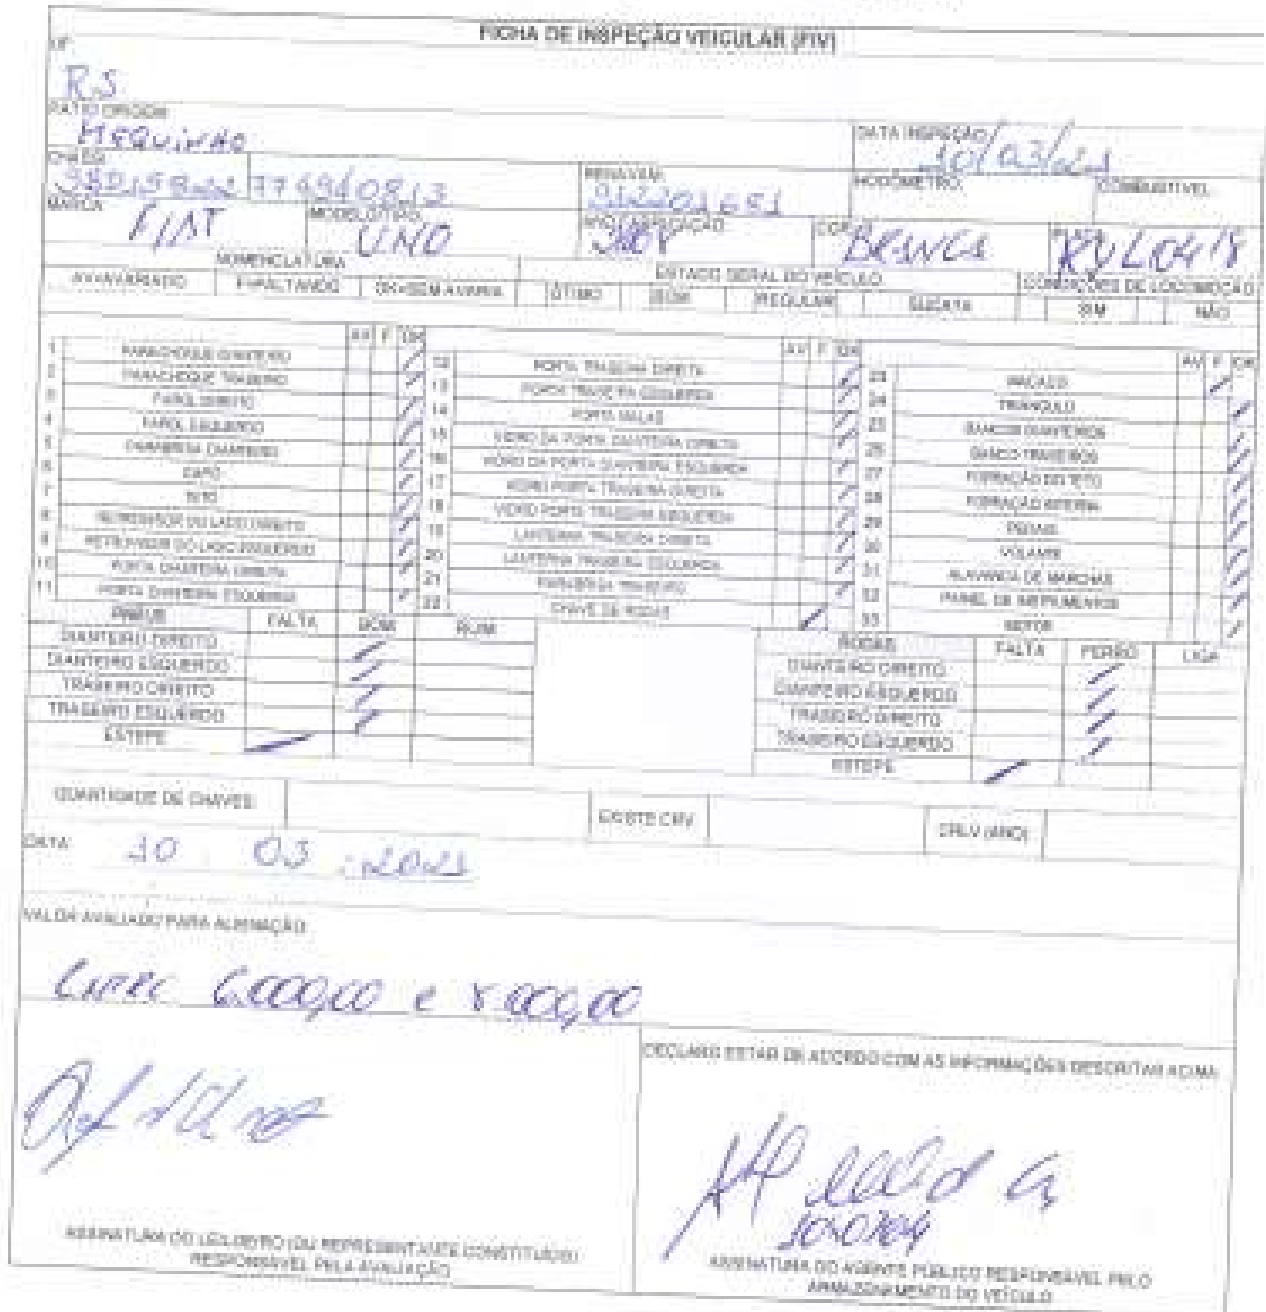 FICHA DE INSPEÇÃO VEICULAR (FIV)
UF
RS
PATIO ORIGEM
MEQUINHO
DATA INSPEÇÃO
10/03/21
CHASSI
RENAVAM
HODÔMETRO
COMBUSTIVEL
MARCA
FIAT
MODELO/TIPO
UNO
ANO FABRICAÇÃO
COR
BRANCA
NOMENCLATURA
ESTADO GERAL DO VEÍCULO
CONDIÇÕES DE LOCOMOÇÃO
AV=AVARIADO F=FALTANDO OK=SEM AVARIA ÓTIMO BOM REGULAR SUCATA SIM NÃO
AV F OK AV F OK AV F OK
1 PARACHOQUE DIANTEIRO
2 PARACHOQUE TRASEIRO
3 FAROL DIREITO
4 FAROL ESQUERDO
5 PARABRISA DIANTEIRO
6 CAPÔ
7 TETO
8 RETROVISOR DO LADO DIREITO
9 RETROVISOR DO LADO ESQUERDO
10 PORTA DIANTEIRA DIREITA
11 PORTA DIANTEIRA ESQUERDA
12 PORTA TRASEIRA DIREITA
13 PORTA TRASEIRA ESQUERDA
14 PORTA MALAS
15 VIDRO DA PORTA DIANTEIRA DIREITA
16 VIDRO DA PORTA DIANTEIRA ESQUERDA
17 VIDRO PORTA TRASEIRA DIREITA
18 VIDRO PORTA TRASEIRA ESQUERDA
19 LANTERNA TRASEIRA DIREITA
20 LANTERNA TRASEIRA ESQUERDA
21 PARABRISA TRASEIRO
22 CHAVE DE RODAS
23 MACACO
24 TRIÂNGULO
25 BANCOS DIANTEIROS
26 BANCO TRASEIROS
27 FORRAÇÃO DO TETO
28 FORRAÇÃO INTERNA
29 PEDAIS
30 VOLANTE
31 ALAVANCA DE MARCHAS
32 PAINEL DE INSTRUMENTOS
33 MOTOR
PNEUS FALTA BOM RUIM
DIANTEIRO DIREITO
DIANTEIRO ESQUERDO
TRASEIRO DIREITO
TRASEIRO ESQUERDO
ESTEPE
RODAS FALTA FERRO LIGA
DIANTEIRO DIREITO
DIANTEIRO ESQUERDO
TRASEIRO DIREITO
TRASEIRO ESQUERDO
ESTEPE
QUANTIDADE DE CHAVES
EXISTE CRV
CRLV (ANO)
DATA 10 03 2021
VALOR AVALIADO PARA ALIENAÇÃO
6.000,00 e 8.000,00
DECLARO ESTAR DE ACORDO COM AS INFORMAÇÕES DESCRITAS ACIMA
ASSINATURA DO LEILOEIRO (OU REPRESENTANTE CONSTITUÍDO)
RESPONSÁVEL PELA AVALIAÇÃO
ASSINATURA DO AGENTE PÚBLICO RESPONSÁVEL PELO
ARMAZENAMENTO DO VEÍCULO